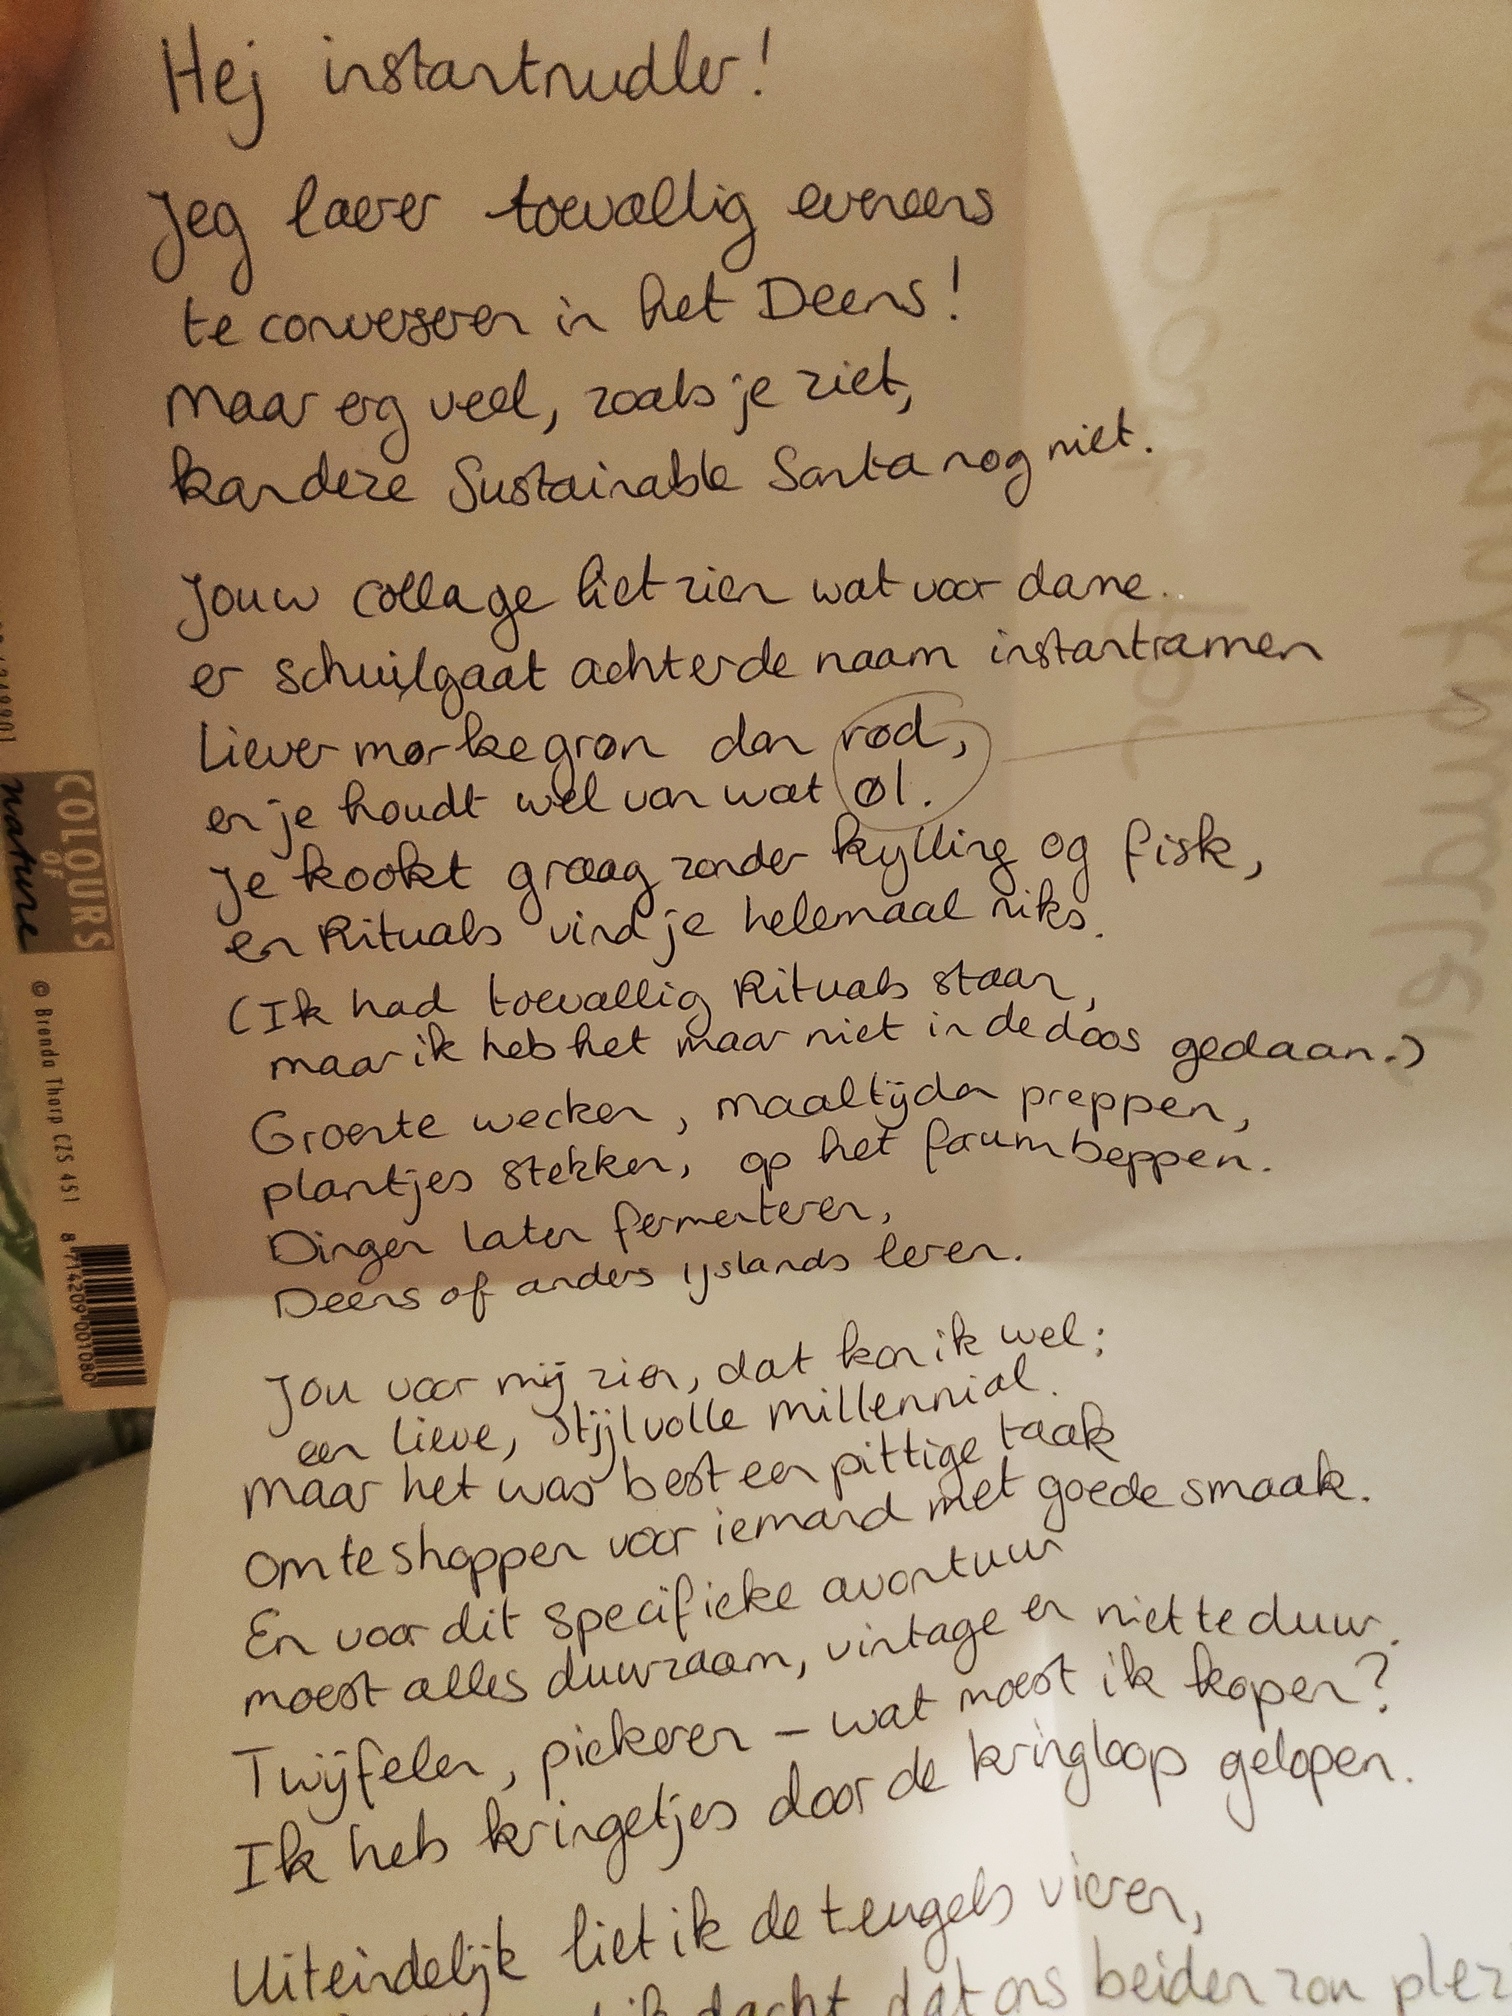 Hej instantnudler!
Jeg lærer toevallig eveneens
te converseren in het Deens!
Maar erg veel, zoals je ziet,
kan deze Sustainable Santa nog niet.
Jouw collage liet zien wat voor dame..
er schuilgaat achter de naam instantramen
Liever mørkegrøn dan rød,
en je houdt wel van wat øl.
Je kookt graag zonder kylling og fisk,
en Rituals vind je helemaal niks.
(Ik had toevallig Rituals staan,
maar ik heb het maar niet in de doos gedaan.)
Groente wecken, maaltijden preppen,
plantjes stekken, op het forum beppen.
Dingen laten fermenteren,
Deens of anders ijslands leren.
Jou voor mij zien, dat kon ik wel;
een lieve, stijlvolle millennial.
Maar het was best een pittige taak
Om te shoppen voor iemand met goede smaak.
En voor dit specifieke avontuur
moest alles duurzaam, vintage en niet te duur.
Twijfelen, piekeren – wat moest ik kopen?
Ik heb kringetjes door de kringloop gelopen.
Uiteindelijk liet ik de teugels vieren,
ik dacht dat ons beiden zou
COLOURS
OF
nature
© Brenda Thorp CZS 451
8 714209 001080